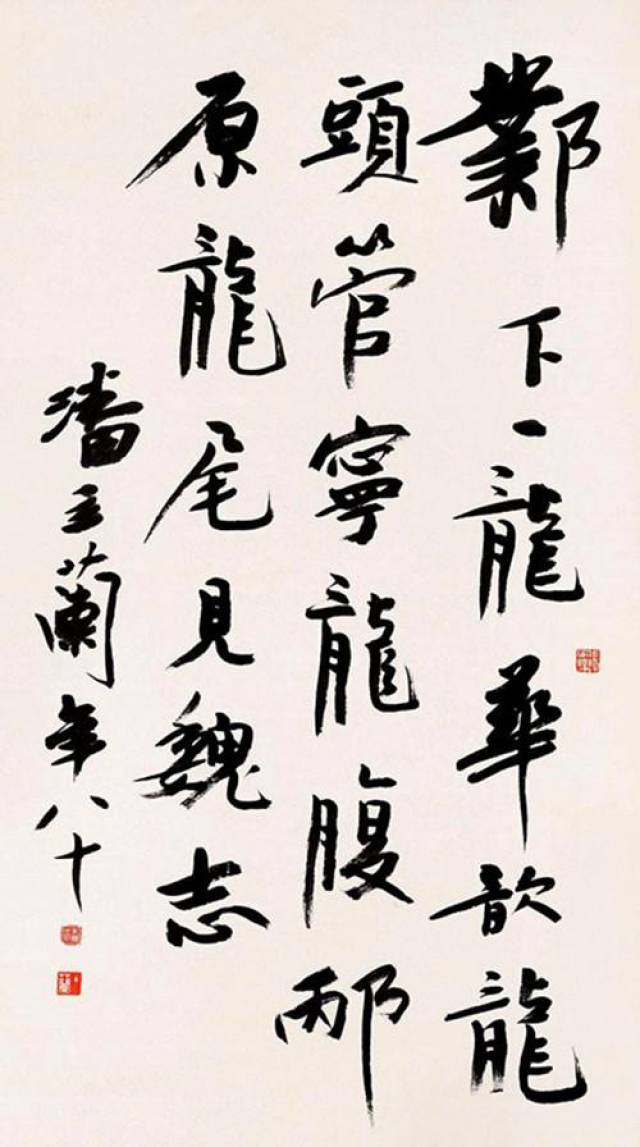 鄴下一龍華歆龍
頭管寧龍腹邴
原龍尾見魏志
潘主蘭年八十